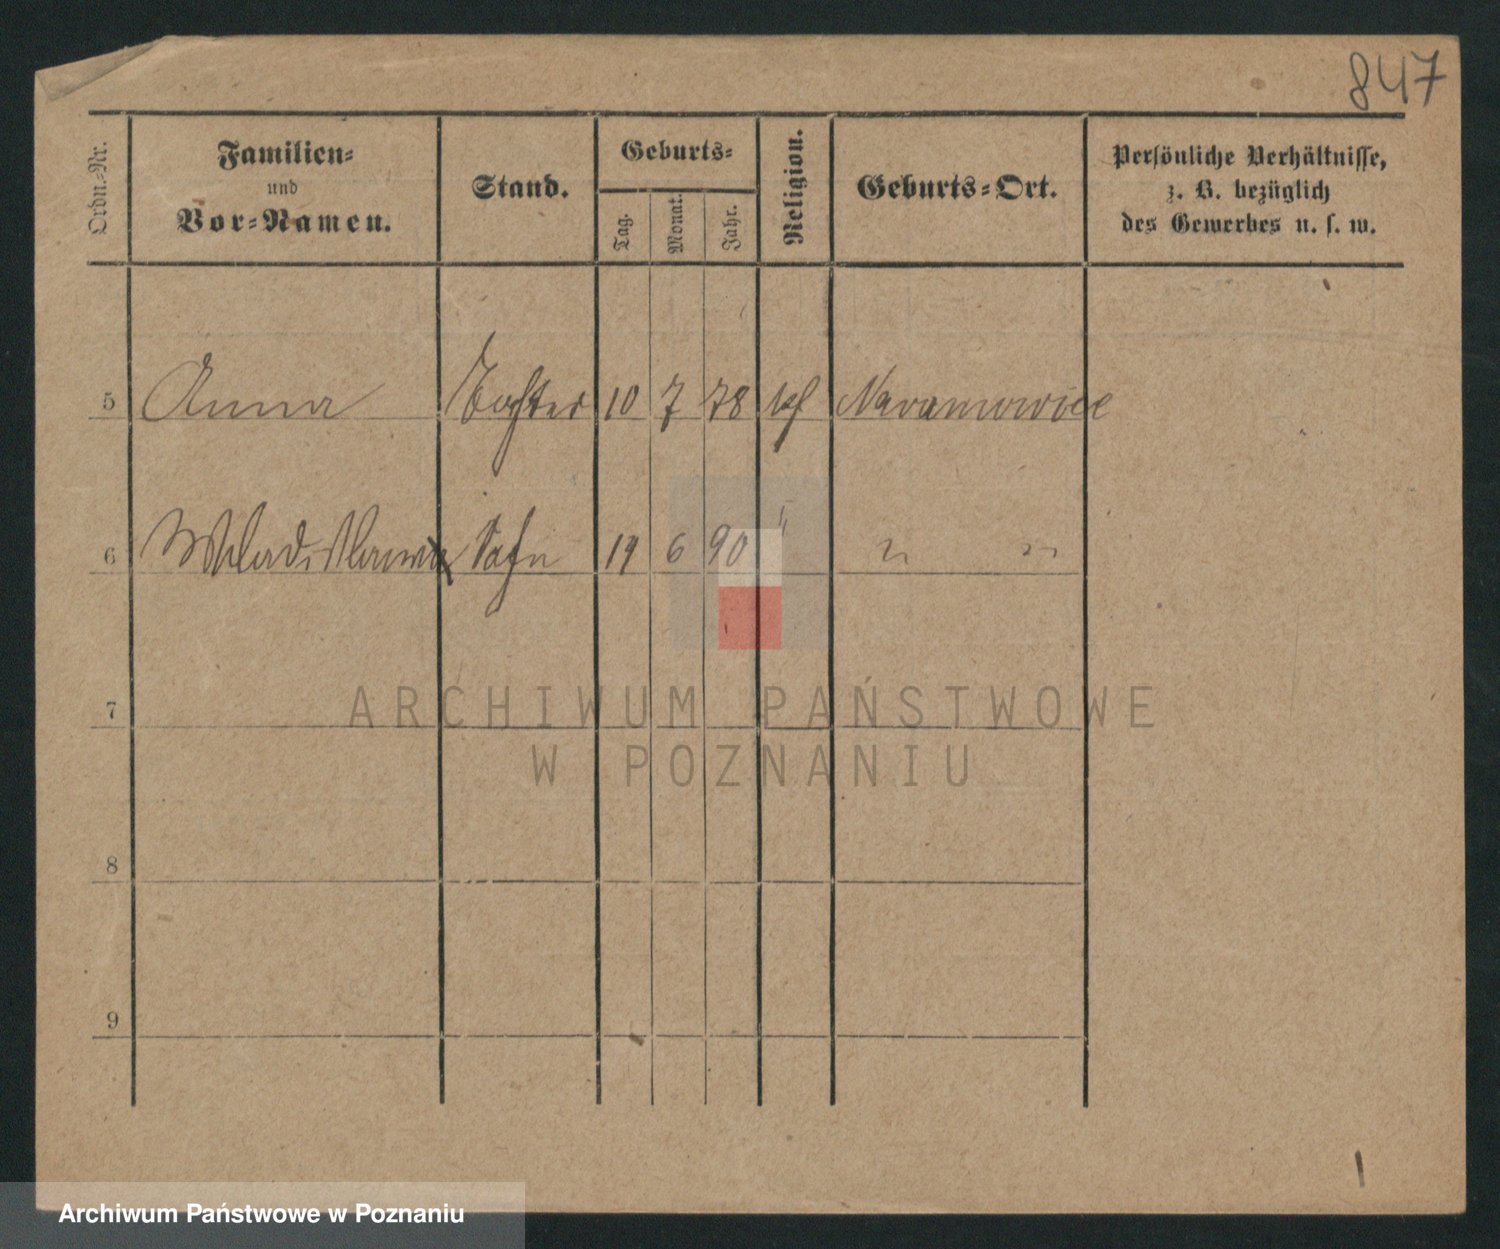 847
Ordn.-Nr.
Familien-
und
Vor-Namen.
Stand.
Geburts-
Tag.
Monat.
Jahr.
Religion.
Geburts-Ort.
Persönliche Verhältnisse,
z. B. bezüglich
des Gewerbes u. s. w.
5 Anna Tochter 10 7 78 kf Naramowice
6 Wladislaw Sohn 19 6 90 " " "
7
8
9
ARCHIWUM PAŃSTWOWE
W POZNANIU
Archiwum Państwowe w Poznaniu